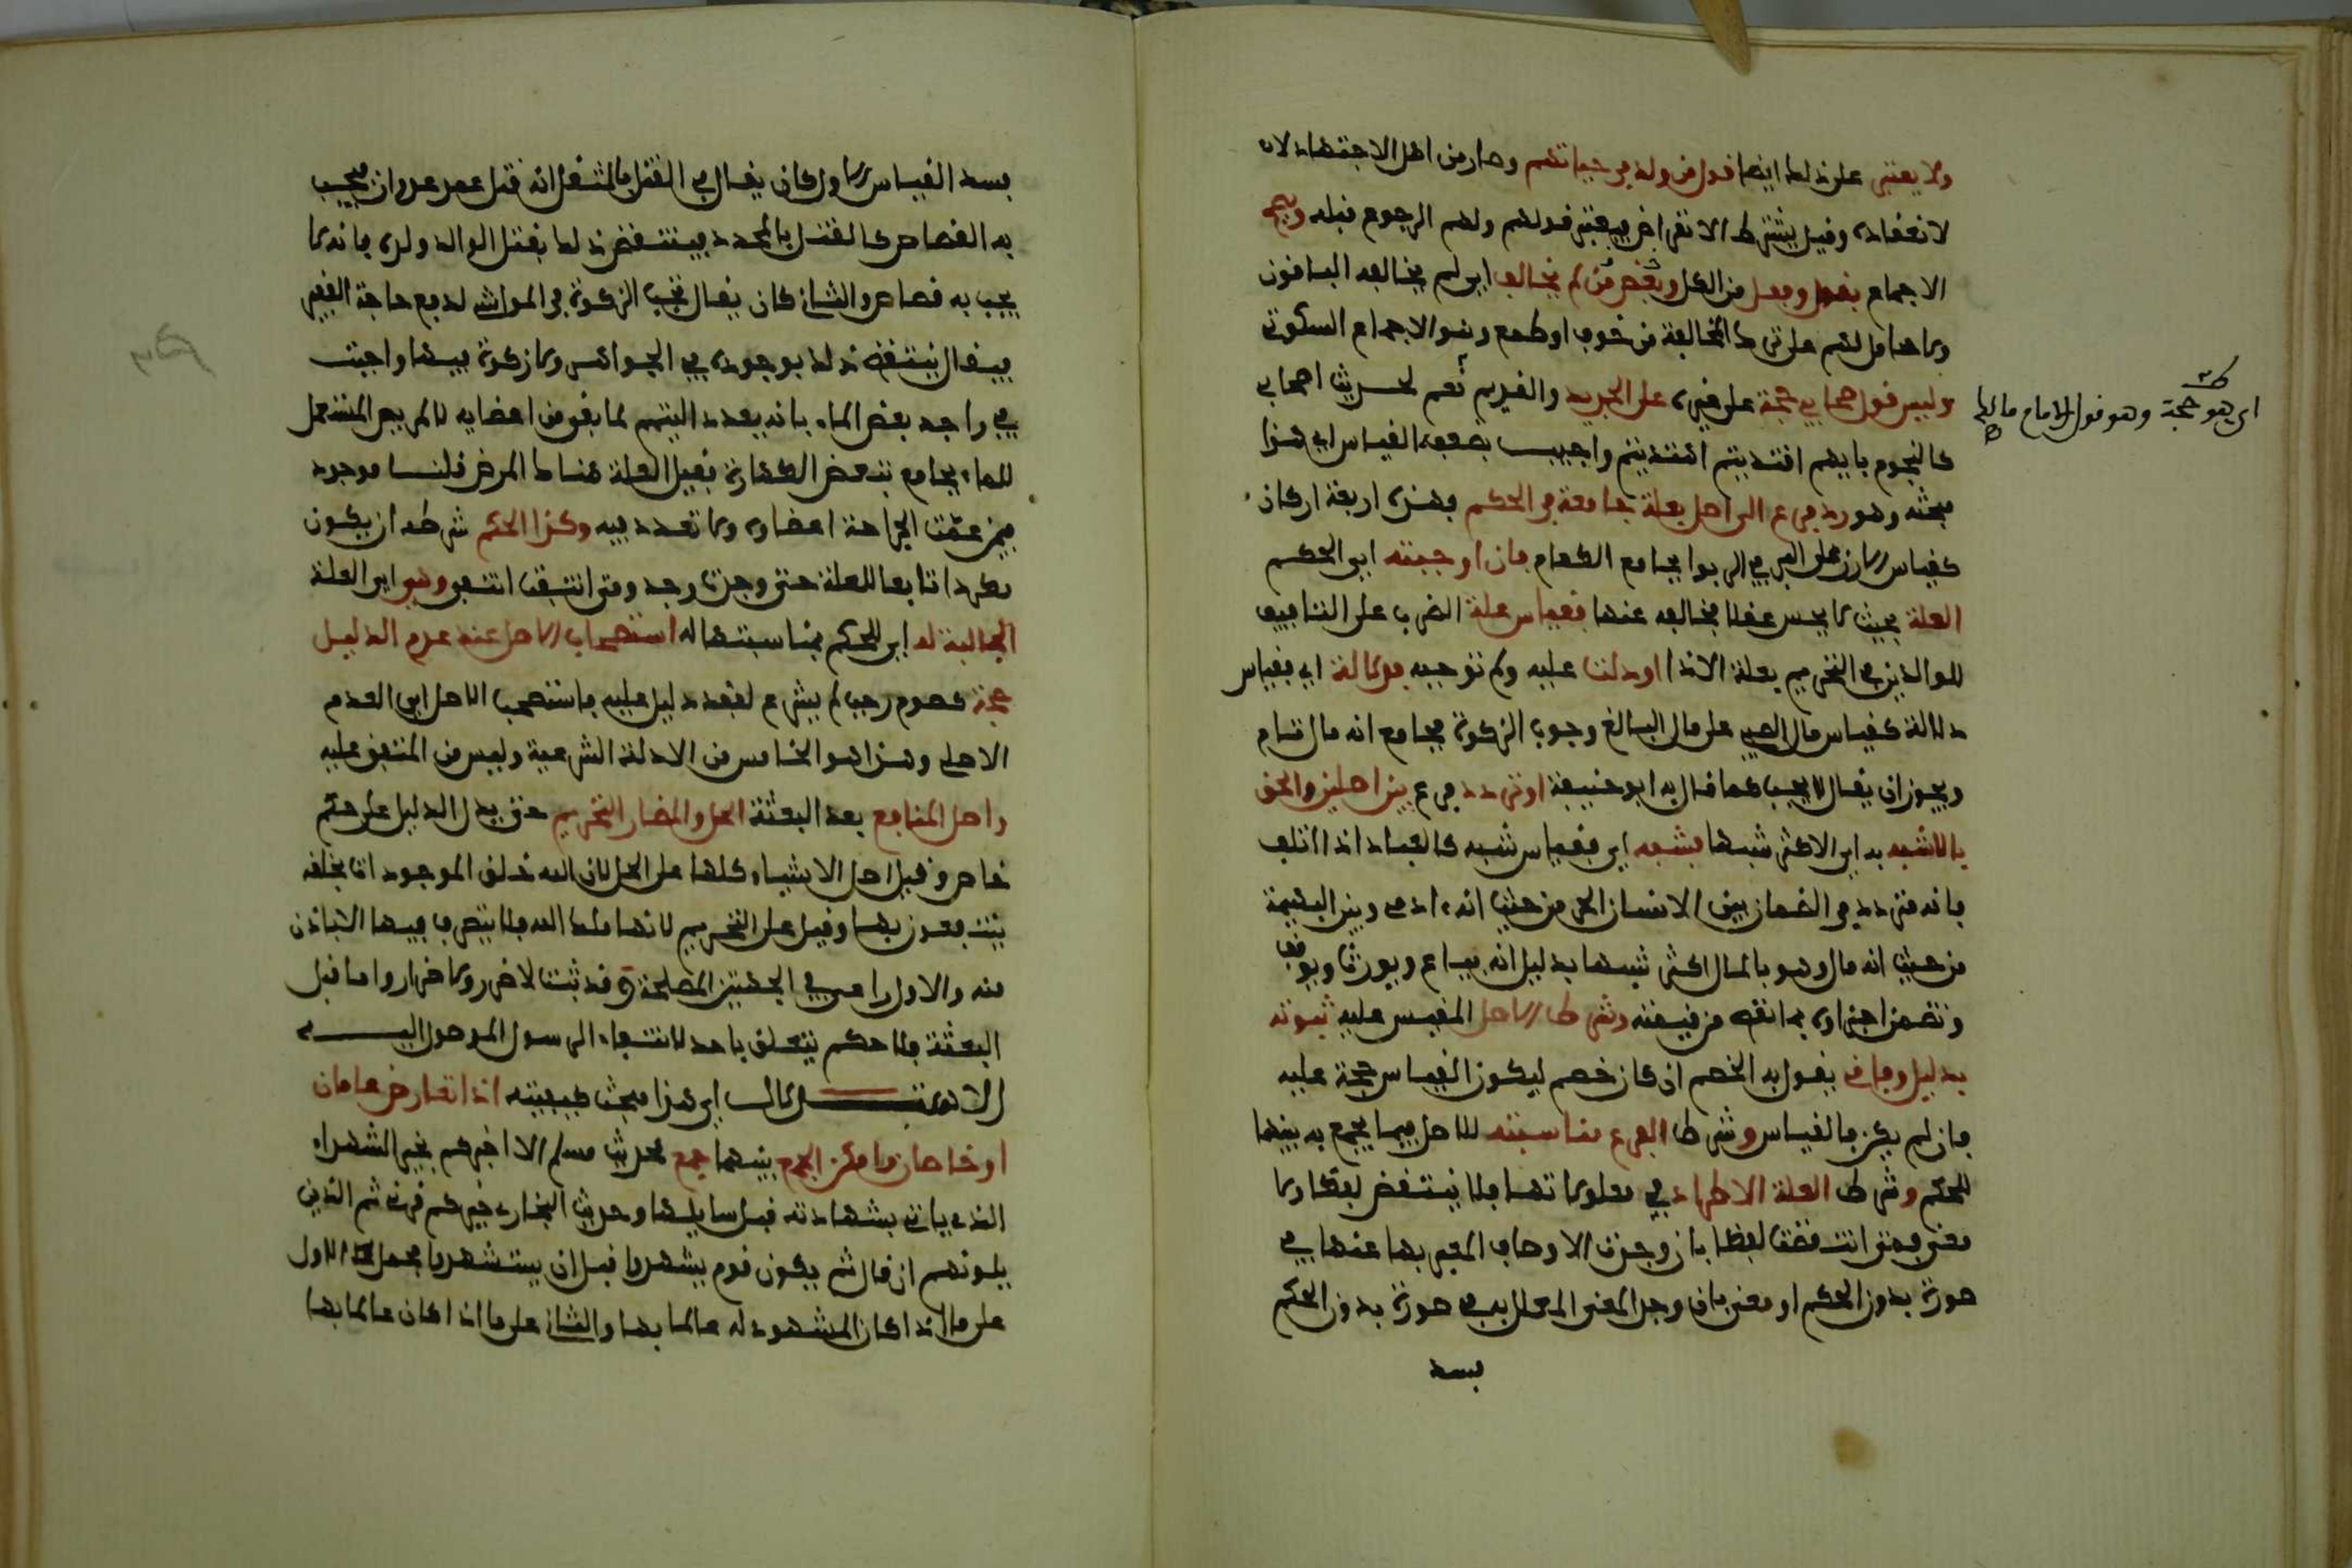 ولا يعتبر على ذلك ايضا قول من ولد في حياتهم وصار من اهل الاجتهاد لان
لانعقاده وقيل يشترط الانقراض فيعتبر قولهم ولهم الرجوع قبله ويصح
الاجماع بقول وفعل من الكل وبعض من لم يخالف اي لم يخالفه الباقون
ولا حامل لهم على ترك المخالفة من خوف او طمع وهو الاجماع السكوتي
وليس قول صحابي حجة على غيره على الجديد والقديم نعم لحديث اصحابي
اي هو حجة وهو قول الامام مالك
كالنجوم بايهم اقتديتم اهتديتم واجيب بضعفه القياس اي هذا
مبحثه وهو رد فرع الى اصل بعلة جامعة في الحكم فهذه اربعة اركان
كقياس الارز على البر في الربوا بجامع الطعام فان اوجبته اي الحكم
العلة بحيث لا يحسن عقلا تخالفه عنها فقياس علة الضرب على التافيف
للوالدين في التحريم بعلة الاذا او دلت عليه ولم توجبه فدلالة اي فقياس
دلالة كقياس مال الصبي على مال البالغ وجوب الزكوة بجامع انه مال تام
ويجوز ان يقال لا يجب كما قال به ابو حنيفة او تردد فرع بين اصلين والحق
بالاشبه به اي الاكثر شبها فشبه اي فقياس شبه كالعبد اذا اتلف
فانه متردد في الضمان بين الانسان الحر من حيث انه ءادمي وبين البهيمة
من حيث انه مال وهو بالمال اكثر شبها بدليل انه يباع ويورث ويوقف
وتضمن اجزاؤه بما نقص من قيمته وشرط الاصل المقيس عليه ثبوته
بدليل وفاقي يقول به الخصم ان كان خصم ليكون القياس حجة عليه
فان لم يكن فالقياس وشرط الفرع مناسبته للاصل فيما يجمع به بينهما
للحكم وشرط العلة الاطراد في معلولاتها فلا ينتقض لفظا ولا
معنى فمتى انتقضت لفظا بان وجدت الاوصاف المعبر بها عنها في
صورة بدون الحكم او معنى بان وجد المعنى المعلل به في صورة بدون الحكم
فسد
فسد القياس الاول كان يقال في القتل بالمثقل انه قتل عمد عدوان فيجب
به القصاص كالقتل بالمحدد فينتقض ذلك بقتل الوالد ولده فانه لا
يجب به قصاص والثاني كان يقال تجب الزكوة في المواشي لدفع حاجة الفقير
فيقال ينتقض ذلك بوجوده في الجواهر ولا زكوة فيها واجيب
في واجد بعض الماء بانه يعدد التيمم لما بقي من اعضايه كالمريض المستعمل
للماء بجامع تبعض الطهارة بقيل العلة هناك المرض قلنا موجود
فيمن عمت الجراحة اعضاه ولا تعدد فيه وكذا الحكم شرطه ان يكون
مطردا تابعا للعلة متى وجدت وجد ومتى انتفت انتفى وهي اي العلة
الجالبة له اي للحكم بمناسبتها له استصحاب الاصل عند عدم الدليل
حجة كصوم رجب لم يشرع لفقد دليل عليه فاستصحب الاصل اي العدم
الاصلي وهذا هو الخامس من الادلة الشرعية وليس من المتفق عليه
واصل المنافع بعد البعثة الحل والمضار التحريم حتى يدل الدليل على حكم
خاص وقيل اصل الاشياء كلها على الحل لان الله خلق الموجودات لخلقه
ينتفعون بها وقيل على التحريم لانها ملك الله فلا يتصرف فيها الا باذن
منه والاول راعى في الجهتين المصلحة وقد ثبت لا ضرر ولا ضرار واما قبل
البعثة فلا حكم يتعلق باحد لانتفاء الرسول الموصول اليه
الاستدلال اي هذا مبحث كيفيته اذا تعارض عامان
او خاصان وامكن الجمع بينهما جمع لحديث مسلم الا اخبركم بخير الشهداء
الذي ياتي بشهادته قبل سايلها وحديث البخاري خيركم قرني ثم الذين
يلونهم ان قال ثم يكون قوم يشهدوا قبل ان يستشهدوا فحمل الاول
على ما اذا كان المشهود له عالما بها والثاني على ما اذا كان عالما بها